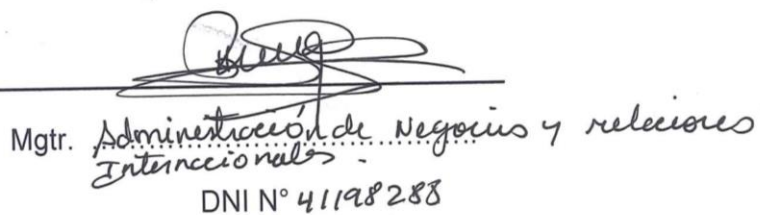 Mgtr. Administracción de Negocios y relaciones
Internacionales.
DNI N° 41198288